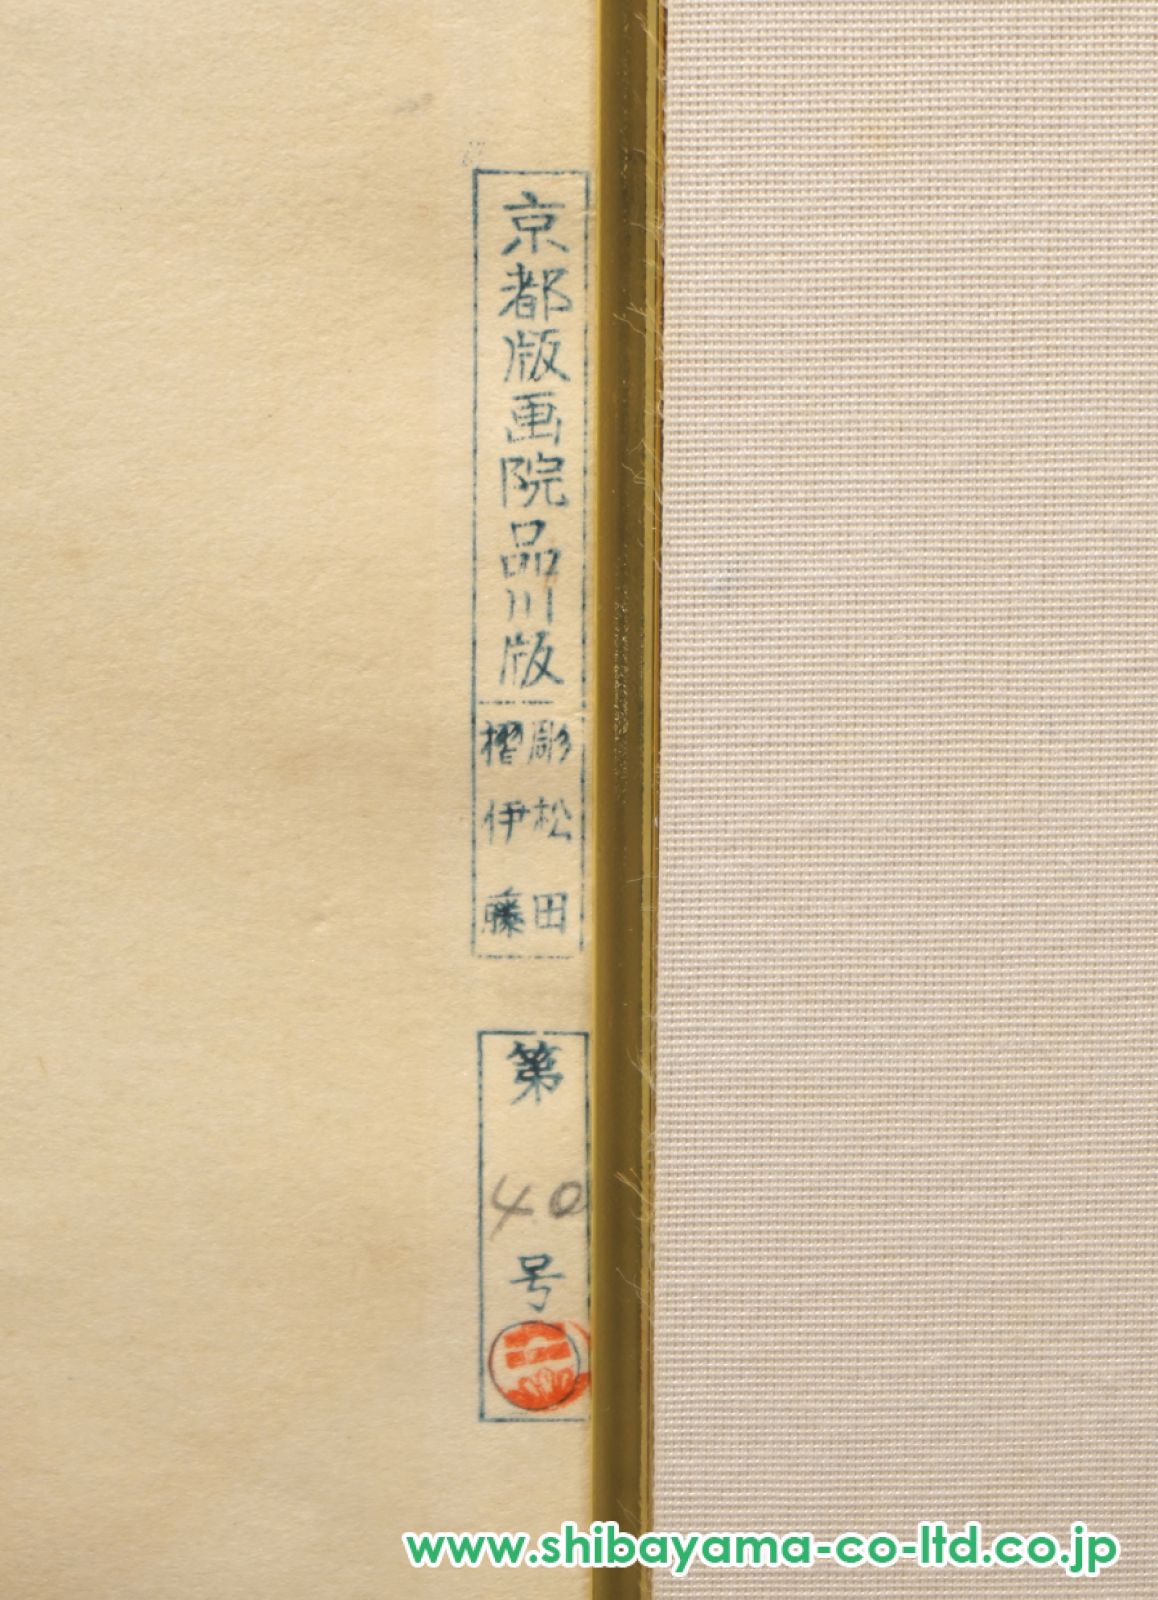 京都版画院品川版
彫松田
摺伊藤
第40号
www.shibayama-co-ltd.co.jp